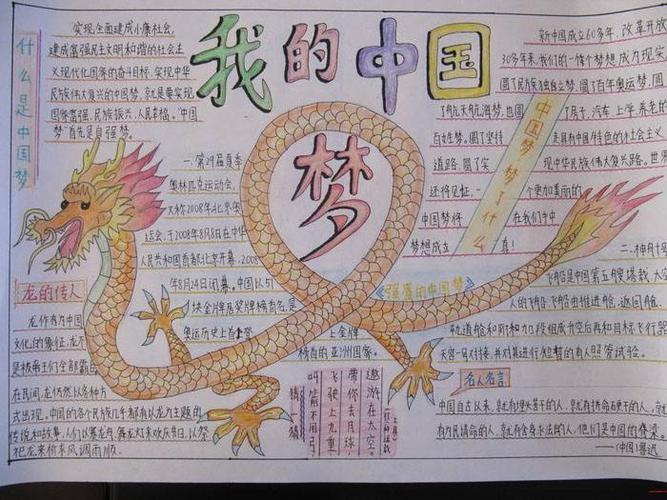 我的中国
梦
什么是中国梦
实现全面建成小康社会,
建成富强民主文明和谐的社会主
义现代化国家的奋斗目标,实现中华
民族伟大复兴的中国梦,就是要实现
国家富强、民族振兴、人民幸福。"中国
梦"首先是自强梦。
一.第29届夏季
奥林匹克运动会,
又称2008年北京奥
运会,于2008年8月8日在中华
人民共和国首都北京开幕,2008
年8月24日闭幕。中国以51
块金牌居奖牌榜首名,是
奥运历史上首个
上金牌
榜首的亚洲国家。
龙的传人
龙作为中国
文化的象征,龙不
在民间,龙仍然以各种方
式出现。中国的各个民族几乎都有以龙为主题的
传说和故事,人们以赛龙舟、舞龙灯来欢庆节日,以祭
祀龙来祈求风调雨顺。
新中国成立60多年,改革开放
30多年来,我们的一件个梦想成为现实
圆了民族独立梦,圆了百年奥运梦,圆
了航天航海梦,也圆
了房子、汽车、上学、养老
百姓梦。圆了坚持
走具有中国特色的社会主义
道路,圆了实
现中华民族伟大复兴路。世
还将见证,一
个更加美丽的
中国梦将
在我们手中
梦想成立
真!
中国梦 梦了什么
《强盛的中国梦》
二.神舟十
飞船是中国第五艘载人
人的飞船,飞船由推进舱、返回舱、
轨道舱和附加段组成,升空后再和目标飞行器
天宫一号对接,并对其进行短暂的有人照管试验。
猜猜
遨游在太空。
带你去月球,
飞驶上九重
叫箭不用弓
名人名言
中国自古以来,就有埋头苦干的人,就有拼命硬干的人,就
有为民请命的人,就有舍身求法的人,他们是中国的脊梁。
——(中国)鲁迅